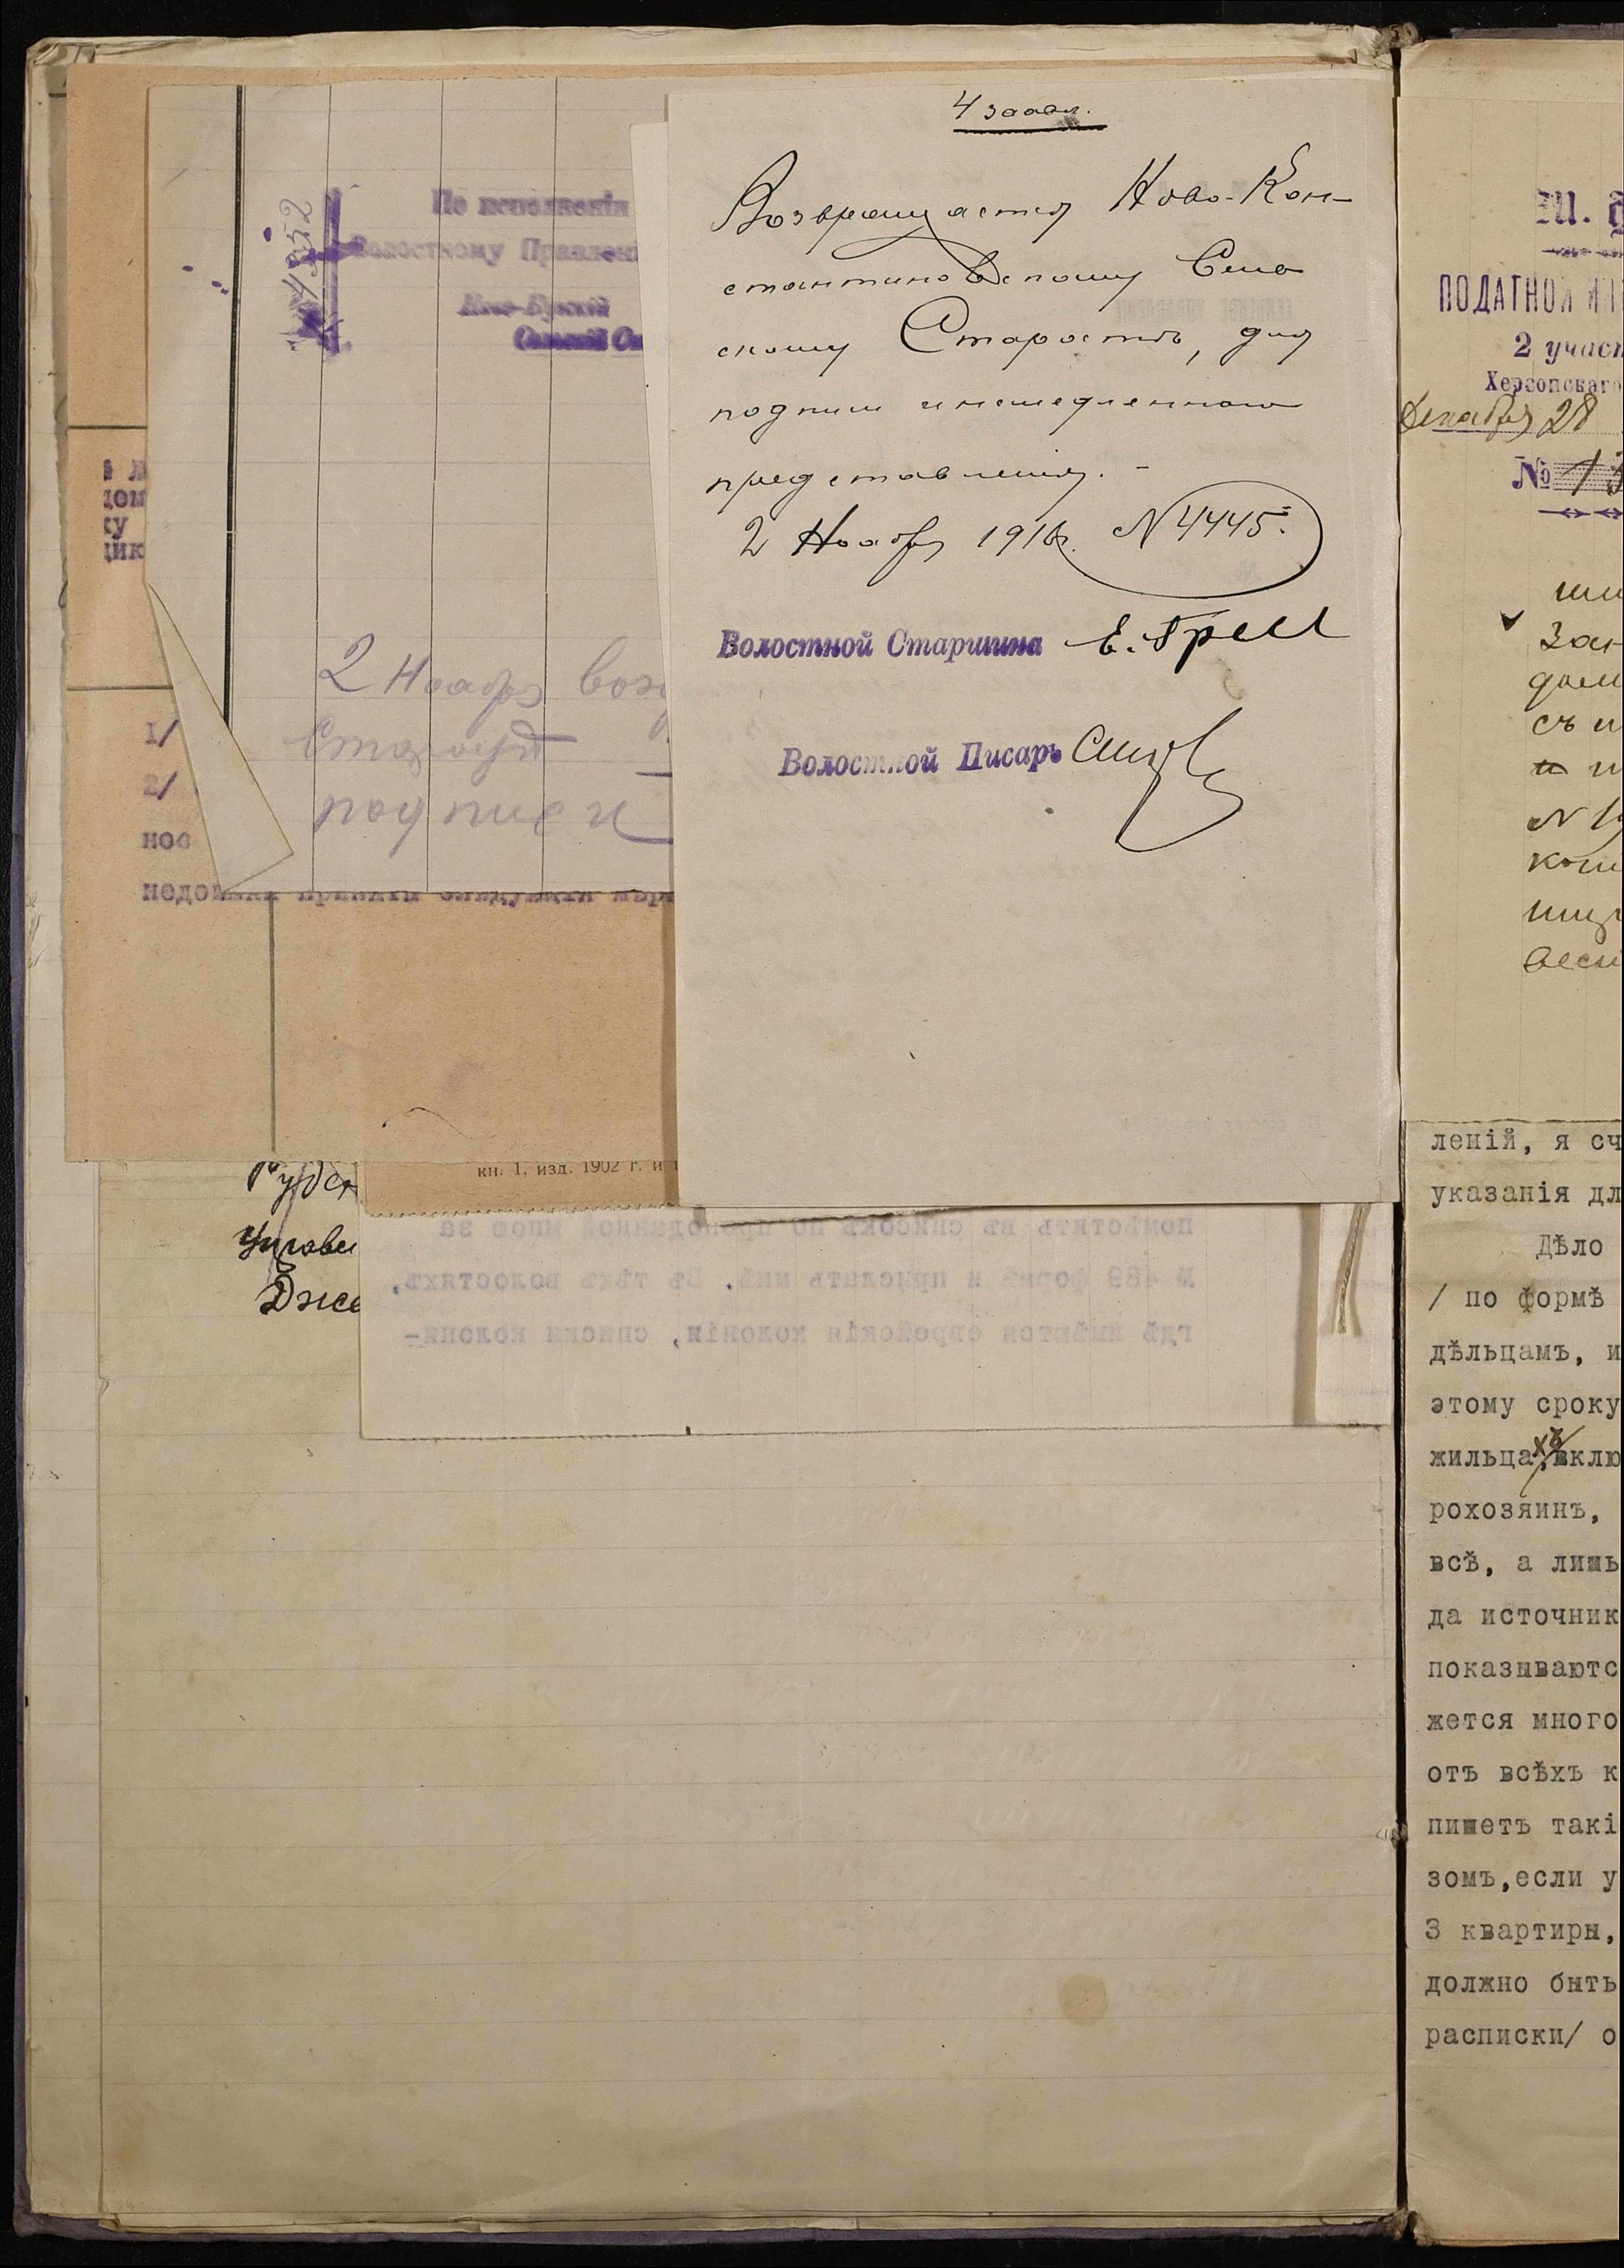 4 заявл.
Возвращается Ново-Кон-
стантиновскому Сель
скому Старость, для
подписи и немедленнаго
представленія. -
2 Ноября 1916г. N 4445.
Волостной Старшина Е. Грелл
Волостной Писарь
4352
По исполненіи
Волостному Правлені
Сельскій Ст
2 Ноября воз
Старост
подписи
1/
2/
нос
недоимки приняты слѣдующія мѣры
кн. 1, изд. 1902 г. и
помѣстить въ списокъ по преподанной мною за
№ 489 формѣ и прислать мнѣ. Въ тѣхъ волостяхъ,
гдѣ имѣются еврейскія колоніи, списки колони-
Управи
Дже
М. Ф
ПОДАТНОЙ ИН
2 участ
Херсонскаго
Декабря 28
№ 13
Зак
доми
съ и
леній, я сч
указанія дл
Дѣло
/ по формѣ
дѣльцамъ, и
этому сроку
жильцахъ, вклю
рохозяинъ,
всѣ, а лишь
да источник
показываютс
жется много
отъ всѣхъ к
пишетъ такі
зомъ,если у
3 квартиры,
должно быть
расписки/ о